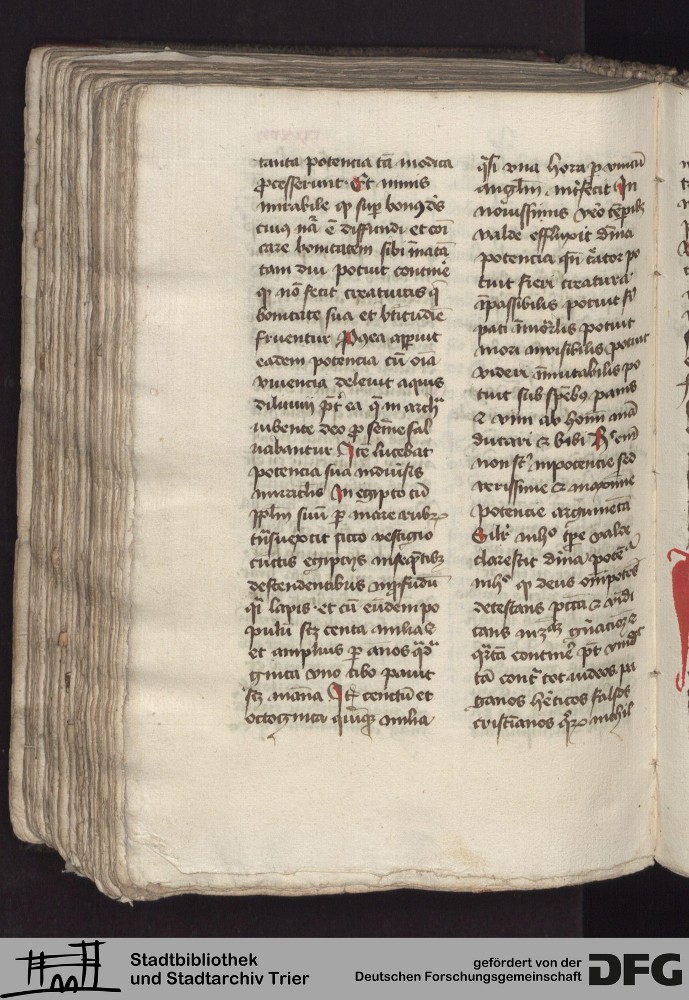 tanta potencia tā modica
ꝓcesserunt · Et nimis
mirabile ꝙ sup bonꝰ dꝰ
cuiꝰ nā ē diffundi et cōi
care bonitatem sibi īnatā
tam diu potuit continē
ꝙ nō fecit creaturas q̄
bonitate sua et bt̄itudīe
fruerentur Postea apparuit
eadem potencia cū oīa
viuencia deleuit aquis
diluuii pt̄ ea q̄ in archa
iubente deo ꝓ semīe sal
uabantur Itē lucebat
potencia sua in diūsis
miracl̄is In egipto cū
ppl̄m suū ꝑ mare rubrꝝ
trāsuexit sicco vestigio
cūctis egipciis inseqn̄tibꝫ
descendentibus in ꝓfundū
q̄si lapis · et cū eūdem po
pulū scꝫ centa milia
et amplius ꝑ anos qᵃdᵃ
ginta vno cibo pauit
scꝫ manna Itē centū et
octoginta quīqꝫ milia
q̄si vna hora ꝑ vnicū
angl̄m int̄fecit In
nouissimis vero tēpibꝫ
valde effluxit diīna
potencia qn̄ c̄ator po
tuit fieri creatura ·
īpassibilis potuit
pati īmōrlis potuit
mori invisibilis potuit
videri īmutabilis po
tuit sub spēbꝰ panis
& vini ab homī mā
ducari & bibi Hᵉ eni
non sᵗ inpotencie sed
verissime & maxime
potencie argumēta
Silr̄ mhᵒ tp̄e valde
clarescit diīna potēᵃ
mhᵒ ꝙ deus om̄ipotēs
detestans pctā &
q̄rta continēr pt̄
tā contᵃ tot iudeos pa
ganos hēticos falsos
cristianos qᵃꝝ nichil
Stadtbibliothek
und Stadtarchiv Trier
gefördert von der
Deutschen Forschungsgemeinschaft
DFG